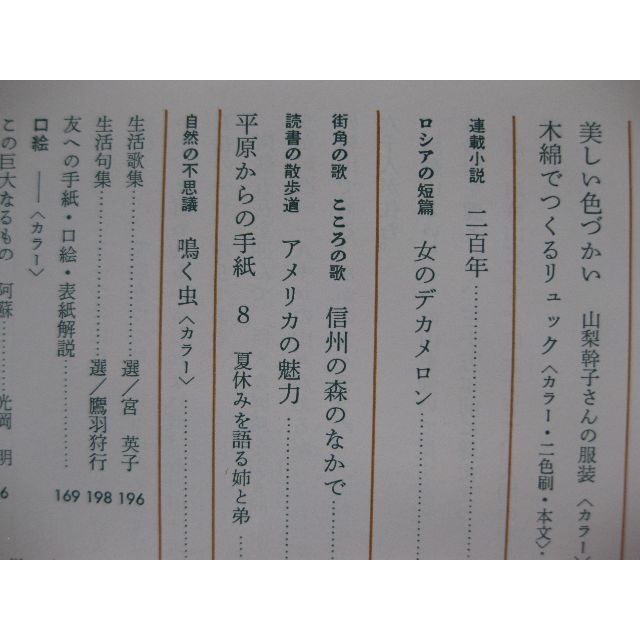 美しい色づかい 山梨幹子さんの服装〈カラー〉
木綿でつくるリュック〈カラー・二色刷・本文〉・
連載小説 二百年……
ロシアの短篇 女のデカメロン……
街角の歌 こころの歌 信州の森のなかで……
読書の散歩道 アメリカの魅力……
平原からの手紙 8 夏休みを語る姉と弟……
自然の不思議 鳴く虫〈カラー〉……
生活歌集……選／宮 英子 196
生活句集……選／鷹羽狩行 198
友への手紙・口絵・表紙解説…… 169
口絵 ――〈カラー〉
この巨大なるもの 阿蘇……光岡 明 6